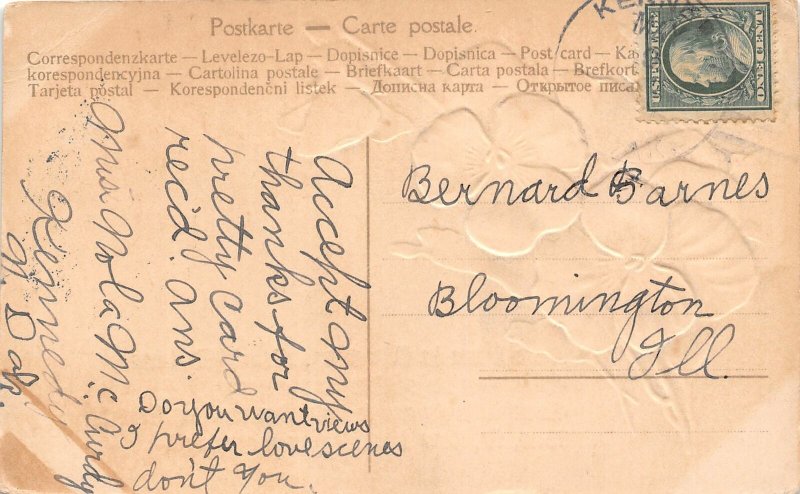 Postkarte — Carte postale.
Correspondenzkarte — Levelezo-Lap — Dopisnice — Dopisnica — Post card — Ka
korespondencyjna — Cartolina postale — Briefkaart — Carta postala — Brefkort
Tarjeta postal — Korespondenční listek — Дописна карта — Открытое писа
U.S. POSTAGE
ONE CENT
KEN
Bernard Barnes
Bloomington
Ill.
Accept my
thanks for
pretty card
rec'd. Ans.
Miss Nola McCurdy
Kennedy
N. Dak.
Do you want views
I prefer love scenes
don't you.